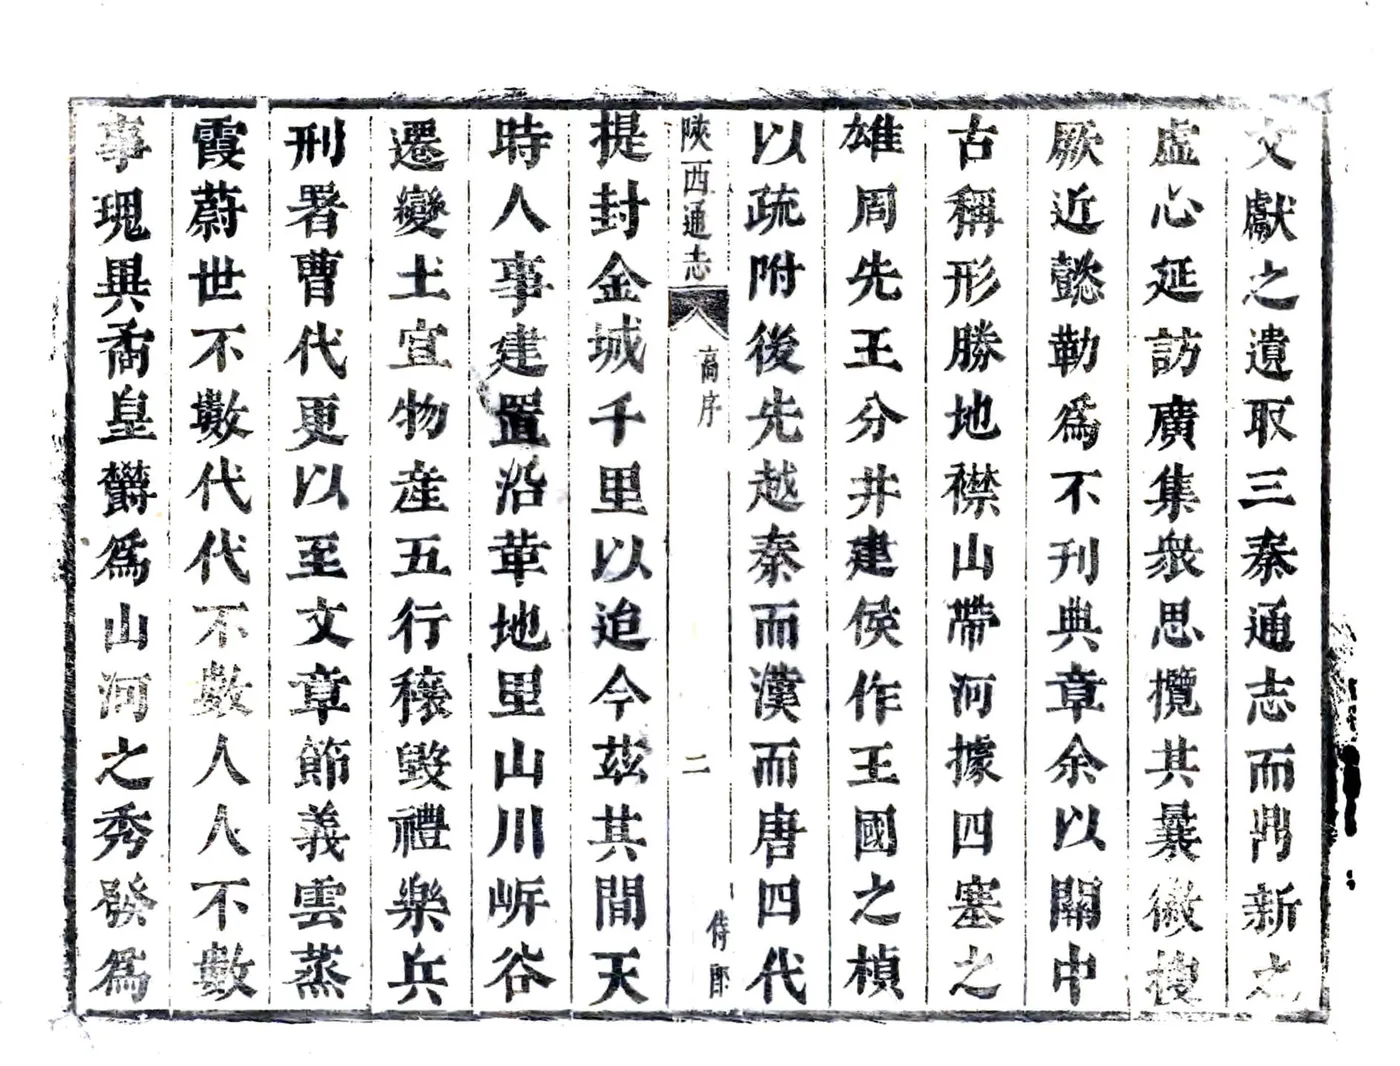 文獻之遺取三秦通志而鼎新之
虛心延訪廣集衆思攬其曩徽搜
厥近懿勒爲不刊典章余以關中
古稱形勝地襟山帶河據四塞之
雄周先王分井建侯作王國之楨
以疏附後先越秦而漢而唐四代
陝西通志
高序
二
侍郎
提封金城千里以迨今茲其間天
時人事建置沿革地里山川岍谷
遷變土宜物産五行穰毀禮樂兵
刑署曹代更以至文章節義雲蒸
霞蔚世不數代代不數人人不數
事瑰異矞皇欝爲山河之秀發爲